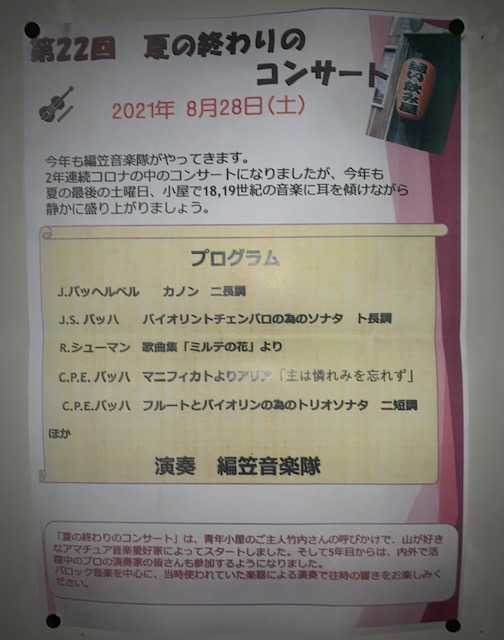 第22回 夏の終わりの
コンサート
2021年 8月28日(土)
今年も編笠音楽隊がやってきます。
2年連続コロナの中のコンサートになりましたが、今年も
夏の最後の土曜日、小屋で18,19世紀の音楽に耳を傾けながら
静かに盛り上がりましょう。
プログラム
J.パッヘルベル カノン 二長調
J.S. バッハ バイオリンとチェンバロの為のソナタ ト長調
R.シューマン 歌曲集「ミルテの花」より
C.P.E. バッハ マニフィカトよりアリア「主は憐れみを忘れず」
C.P.E.バッハ フルートとバイオリンの為のトリオソナタ 二短調
ほか
演奏 編笠音楽隊
「夏の終わりのコンサート」は、青年小屋のご主人竹内さんの呼びかけで、山が好き
なアマチュア音楽愛好家によってスタートしました。そして5年目からは、内外で活
躍中のプロの演奏家の皆さんも参加するようになりました。
バロック音楽を中心に、当時使われていた楽器による演奏で往時の響きをお楽しみく
ださい。